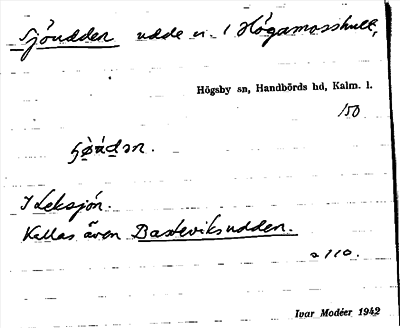 Sjöudden udde vi. i Högamosshult,
Högsby sn, Handbörds hd, Kalm. l.
150
I Leksjön.
Kallas även Basteviksudden.
a 110.
Ivar Modéer 1942